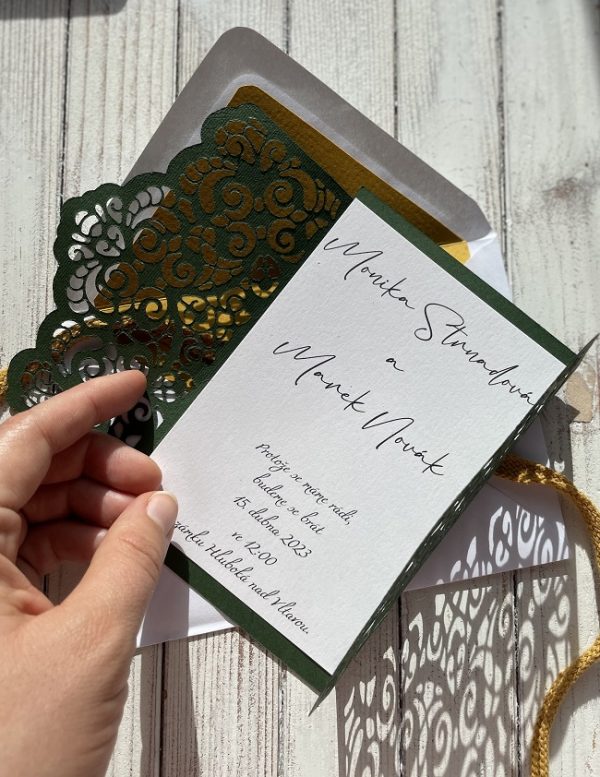 Monika Strnadová
a
Marek Novák
Protože se máme rádi,
budeme se brát
15. dubna 2023
ve 12:00
zámku Hluboká nad Vltavou.